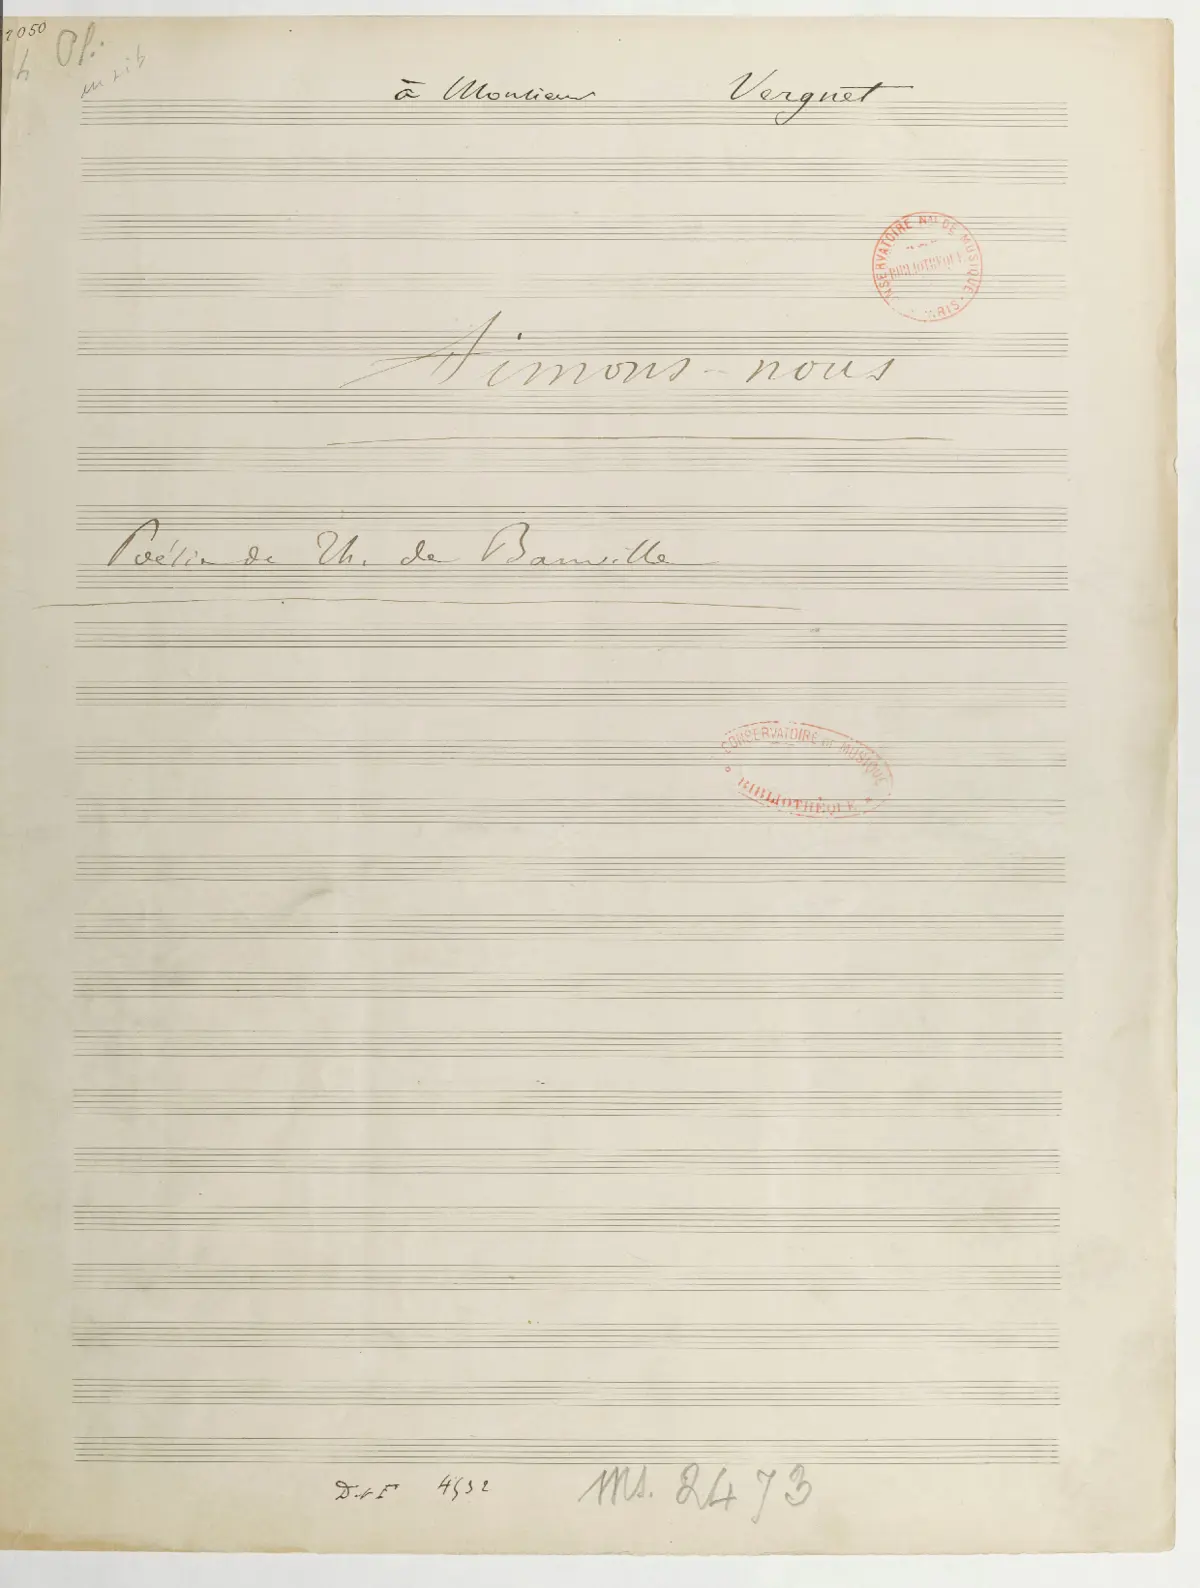 1050
Pl.
à Monsieur Vergnet
CONSERVATOIRE NAL DE MUSIQUE
BIBLIOTHÈQUE
PARIS
Aimons-nous
Poésie de Th. de Banville
CONSERVATOIRE DE MUSIQUE
BIBLIOTHÈQUE
Ms. 2473